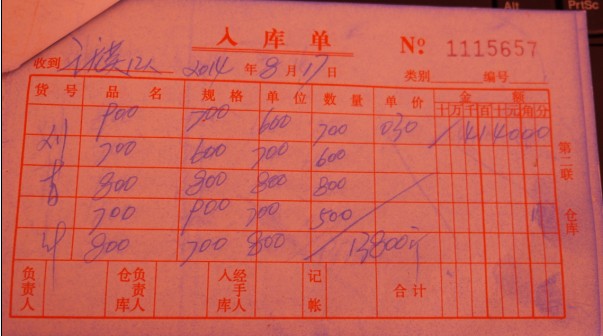 Alt PrtSc
入库单 № 1115657
收到 12人 2014年8月17日 类别 编号
货号 品名 规格 单位 数量 单价 金额
十万千百十元角分
900 700 600 700 030 414000
700 600 700 600
800 800 800 800
700 900 700 500
800 700 800 13800斤
负责人 仓库负责人 入库经手人 记帐 合计
第二联 仓库